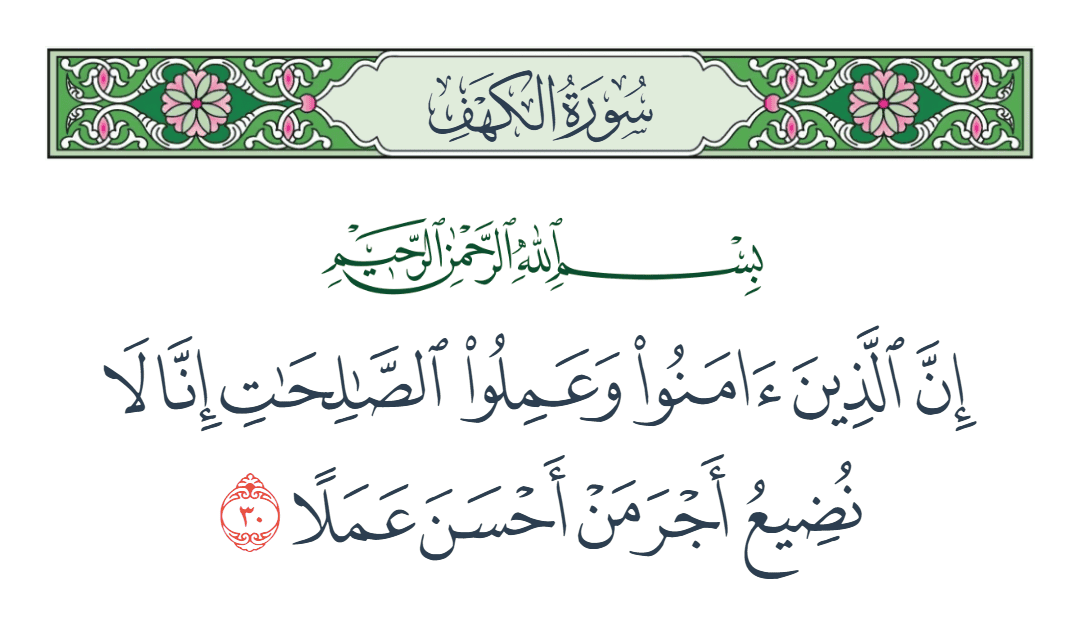 سُورَةُ الكَهْفِ
بِسْمِ ٱللَّهِ ٱلرَّحْمَٰنِ ٱلرَّحِيمِ
إِنَّ ٱلَّذِينَ ءَامَنُوا۟ وَعَمِلُوا۟ ٱلصَّـٰلِحَـٰتِ إِنَّا لَا
نُضِيعُ أَجْرَ مَنْ أَحْسَنَ عَمَلًا ٣٠